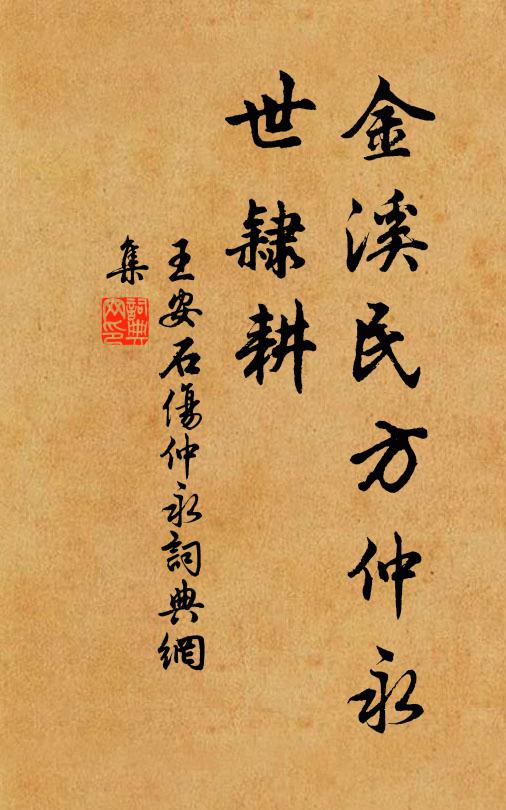 金溪民方仲永
世隸耕
王安石傷仲永詞典網
集